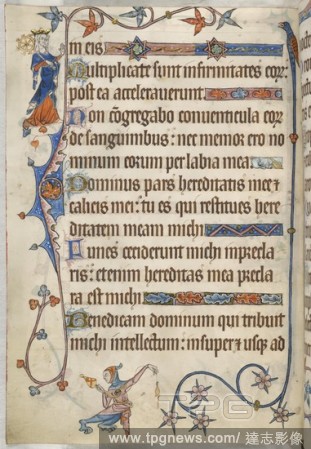 in eis
Multiplicate sunt infirmitates eor͛
post ea acceleraverunt
Non cōgregabo conventicula eor͛
de sanguinibus: nec memor ero no
minum eorum per labia mea
Dominus pars hereditatis mee ⁊
calicis mei: tu es qui restitues here
ditatem meam michi
Funes ceciderunt michi in precla
ris: etenim hereditas mea precla
ra est michi
Benedicam dominum qui tribuit
michi intellectum: insuper ⁊ usq͛ ad
TPG
www.tpgnews.com/達志影像